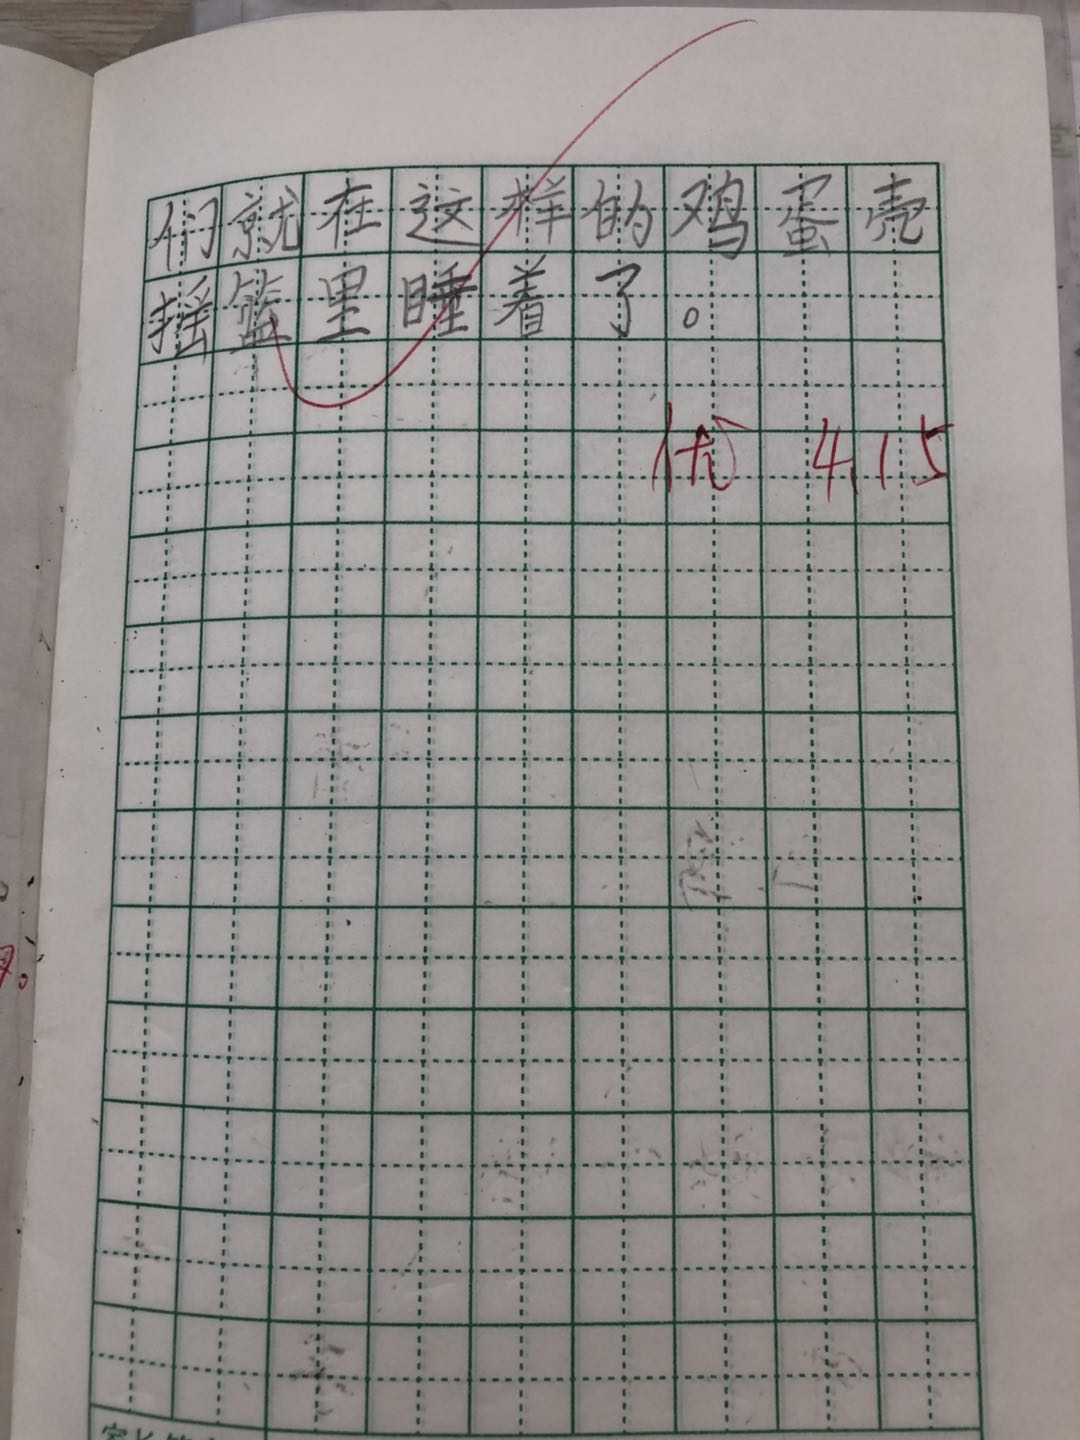 们就在这样的鸡蛋壳
摇篮里睡着了。
优 4.15